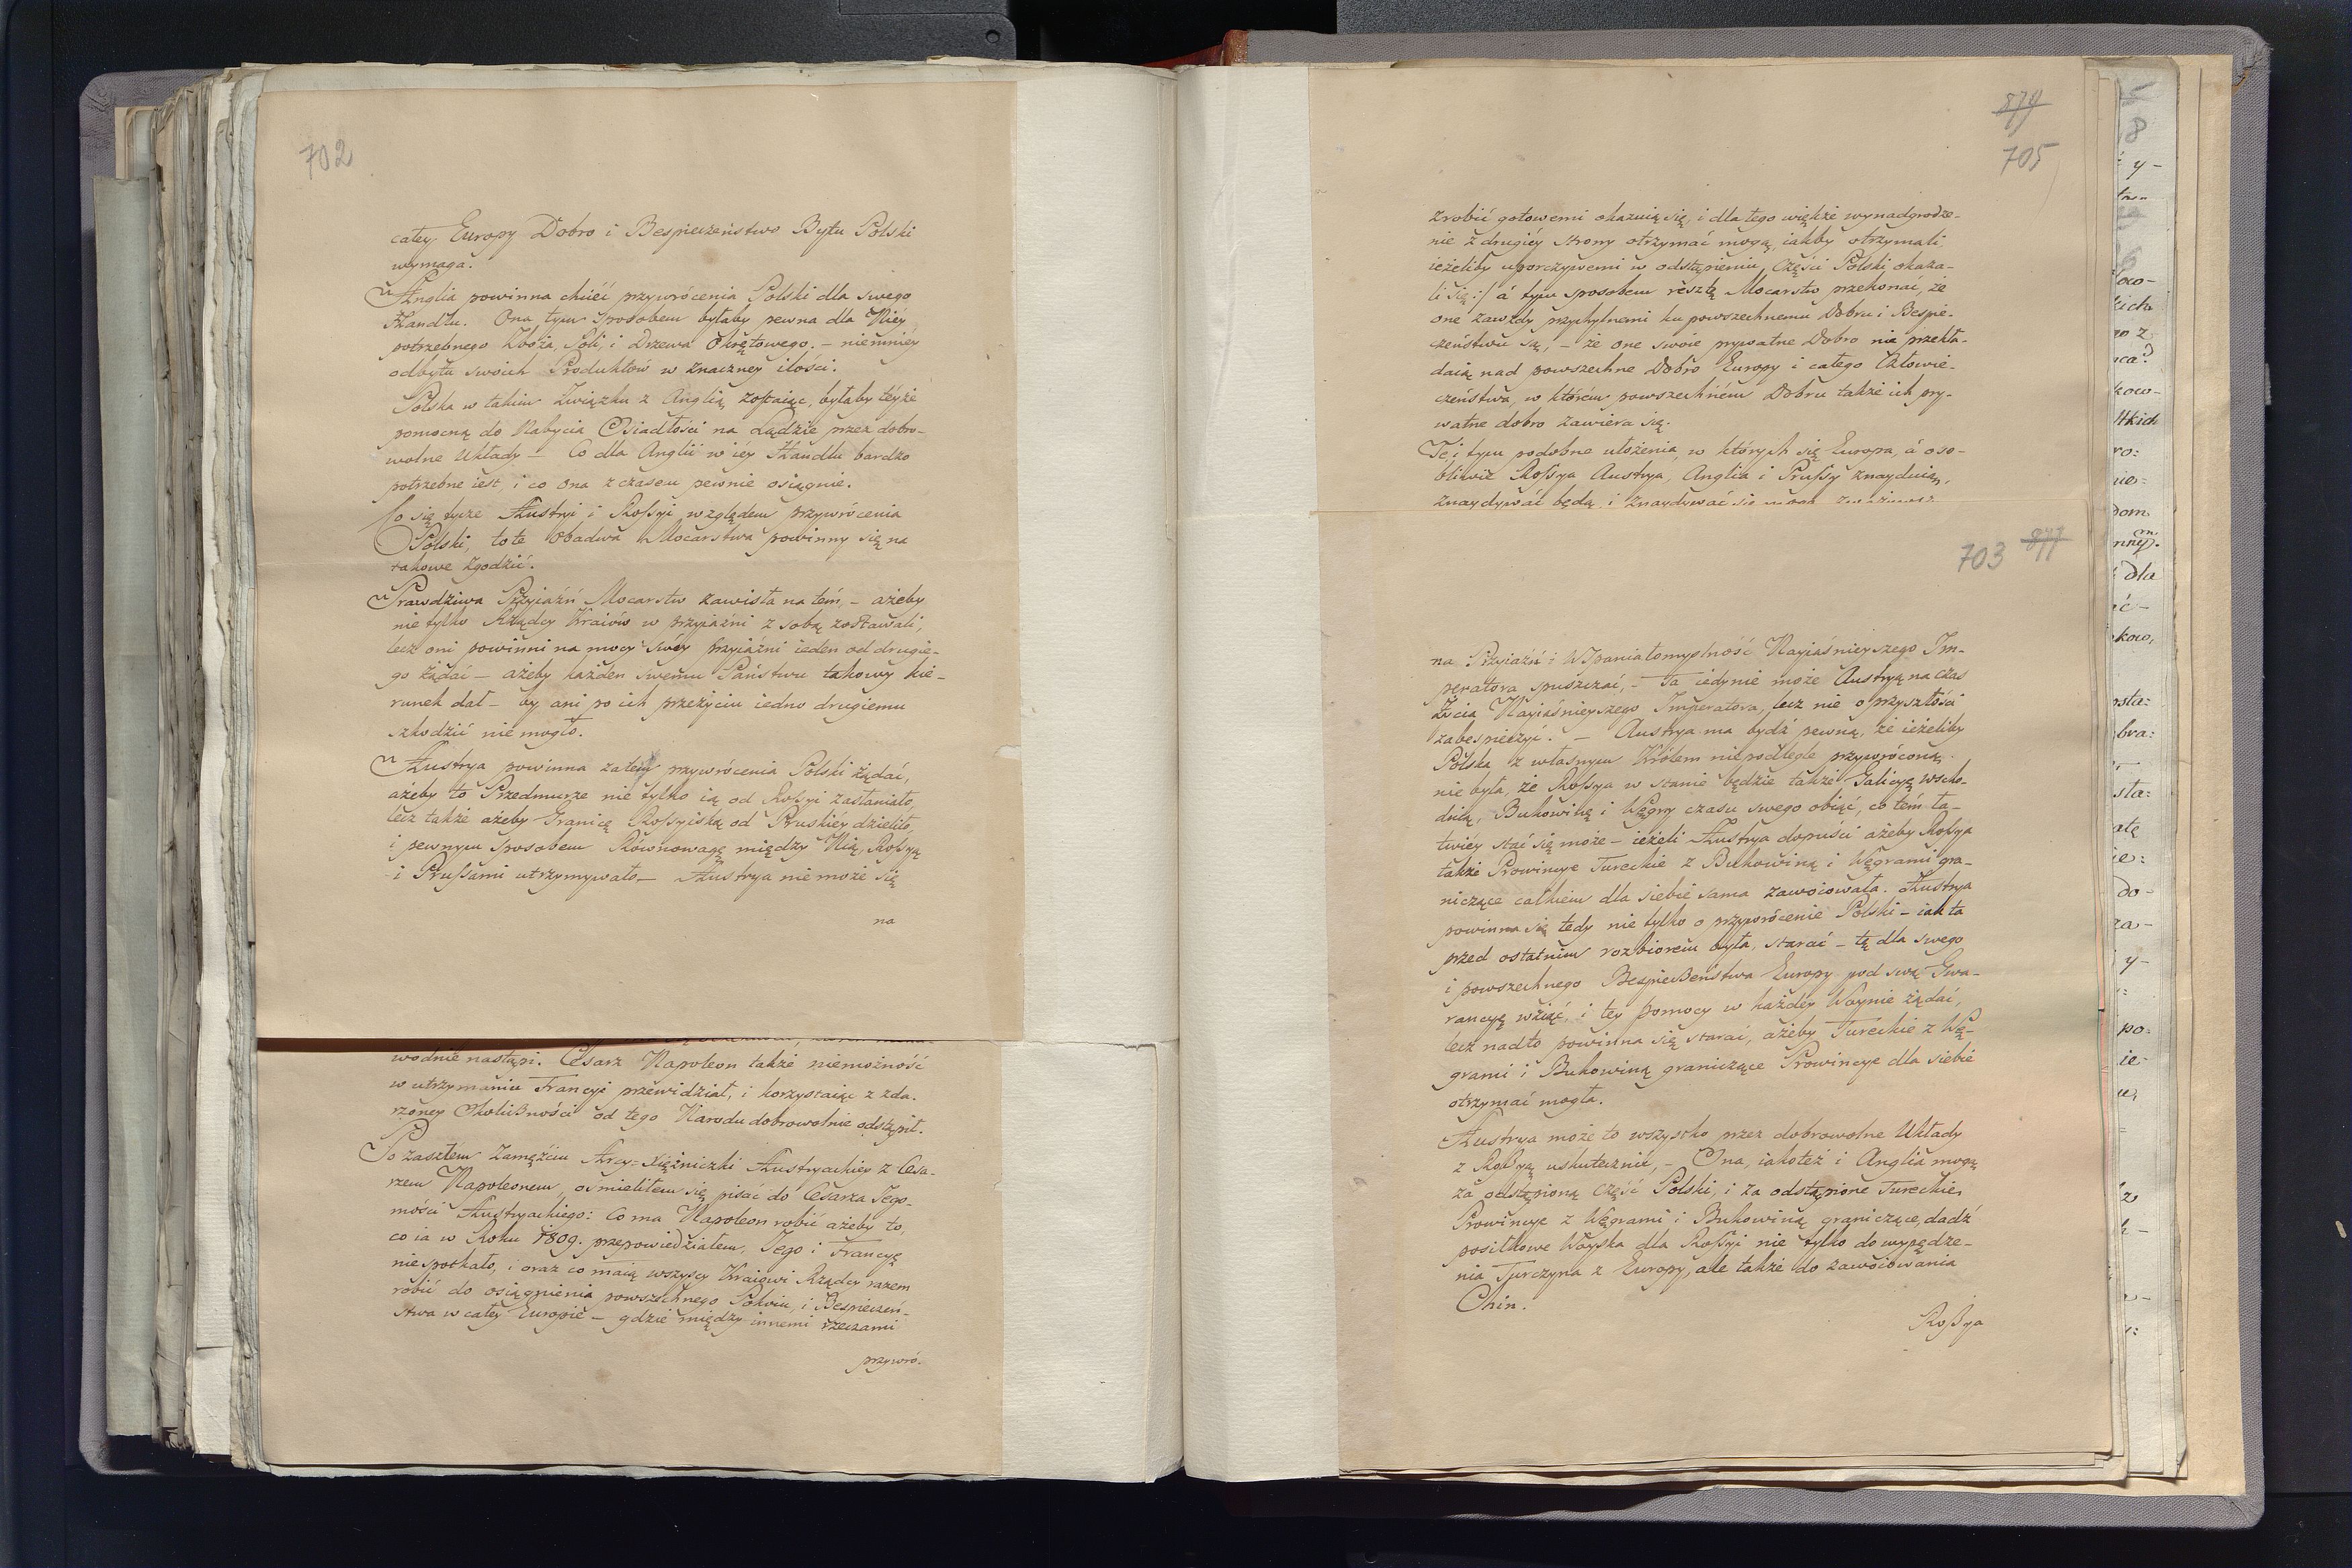 702
całey Europy Dobro i Bespieczeństwo Bytu Polski
wymaga.
Anglia powinna chcieć przywrócenia Polski dla swego
Handlu. Ona tym sposobem byłaby pewna dla Niéy
potrzebnego Zboża, Soli, i Drzewa Okrętowego. – niemniéy
odbytu swoich Produktów w znaczney ilości.
Polska w takim Związku z Anglią zostaiąc, byłaby téyże
pomocną do Nabycia Osiadłości na Lądzie przez dobro-
wolne Układy – Co dla Anglii w iéy Handlu bardzo
potrzebne iest, i co Ona z czasem pewnie osiągnie.
Co się tycze Austryi i Roſsyi względem przywrócenia
Polski, to te Obadwa Mocarstwa powinny się na
takowe zgodzić.
Prawdziwa Przyiaźń Mocarstw zawisła na tém, – ażeby
nie tylko Rządcy Kraiów w przyiaźni z sobą zostawali,
lecz oni powinni na mocy swéy przyiaźni ieden od drugie-
go żądać – ażeby każden swemu Państwu takowy kie-
runek dał – by ani po ich przeżyciu iedno drugiemu
szkodzić nie mogło.
Austrya powinna zatém przywrócenia Polski żądać,
ażeby to Przedmurze nie tylko ią od Roſsyi zasłaniało,
lecz także ażeby Granicę Roſsyiską od Pruskiéy dzieliło,
i pewnym sposobem Równowagę między Nią, Roſsyą
i Pruſsami utrzymywało – Austrya nie może się
na
wodnie nastąpi. Cesarz Napoleon także niemożność
w utrzymaniu Francyi przewidział, i korzystaiąc z zda-
rzoney Okoliczności od tego Narodu dobrowolnie odstąpił.
Po zaszłém Zamęźciu Arcy-Xiężniczki Austryackiey z Cesa-
rzem Napoleonem, ośmieliłem się pisać do Cesarza Jego-
mości Austryackiego: Co ma Napoleon robić ażeby to,
co ia w Roku 1809. przepowiedziałem, Jego i Francyę
nie spotkało, i oraz co maią wszyscy Kraiowi Rządcy razem
robić do osiągnienia powszechnego Pokoiu, i Bespieczeń-
stwa w całey Europie – gdzie między innemi rzeczami
przywró-
879
705
zrobić gotowemi okazuią się, i dla tego większe wynadgrodze-
nie z drugiéy strony otrzymać mogą, iakby otrzymali,
ieżeliby uporczywemi w odstąpieniu Części Polski okaza-
li się :/ á tym sposobem resztę Mocarstw przekonać, że
one zawzdy przychylnemi ku powszechnemu Dobru i Bespie-
czeństwu są, – że one swoie prywatne Dobro nie przekła-
daią nad powszechne Dobro Europy i całego Człowie-
czeństwa, w którém powszechném Dobru także ich pry-
watne dobro zawiera się.
Te i tym podobne ułożenia, w których się Europa, á oso-
bliwie Roſsya Austrya, Anglia i Pruſsy znayduią,
znaydywać będą, i znaydywać się
703 877
na Przyiaźń i Wspaniałomyślność Nayiaśnieyszego Im-
peratora spuszczać, – Ta iedynie może Austryą na czas
Życia Nayiaśnieyszego Imperatora, lecz nie o przyszłości
zabespieczyć. – Austrya ma bydź pewną, że ieżeliby
Polska z własnym Królem niepodległe przywróconą
nie była, że Roſsya w stanie będzie także Galicyę wscho-
dnią, Bukowinę i Węgry czasu swego obiąć, co tém ła-
twiéy stać się może – ieżeli Austrya dopuści ażeby Roſsya
także Prowincye Tureckie z Bukowiną i Węgrami gra-
niczące całkiem dla siebie sama zawoiowała. Austrya
powinna się tedy nie tylko o przywrócenie Polski – iak ta
przed ostatnim rozbiorem była, starać – tę dla swego
i powszechnego Bespieczeństwa Europy pod swą Gwa-
rancyę wziąć, i tey pomocy w każdéy Woynie żądać,
lecz nadto powinna się starać, ażeby Tureckie z Wę-
grami i Bukowiną graniczące Prowincye dla siebie
otrzymać mogła.
Austrya może to wszystko przez dobrowolne Układy
z Roſsyą uskutecznić, – Ona, iakoteż i Anglia mogą
za odstąpioną część Polski, i za odstąpione Tureckie
Prowincye z Węgrami i Bukowiną graniczące, dadź
posiłkowe Woyska dla Roſsyi nie tylko do wypędze-
nia Turczyna z Europy, ale także do zawoiowania
Chin.
Roſsya